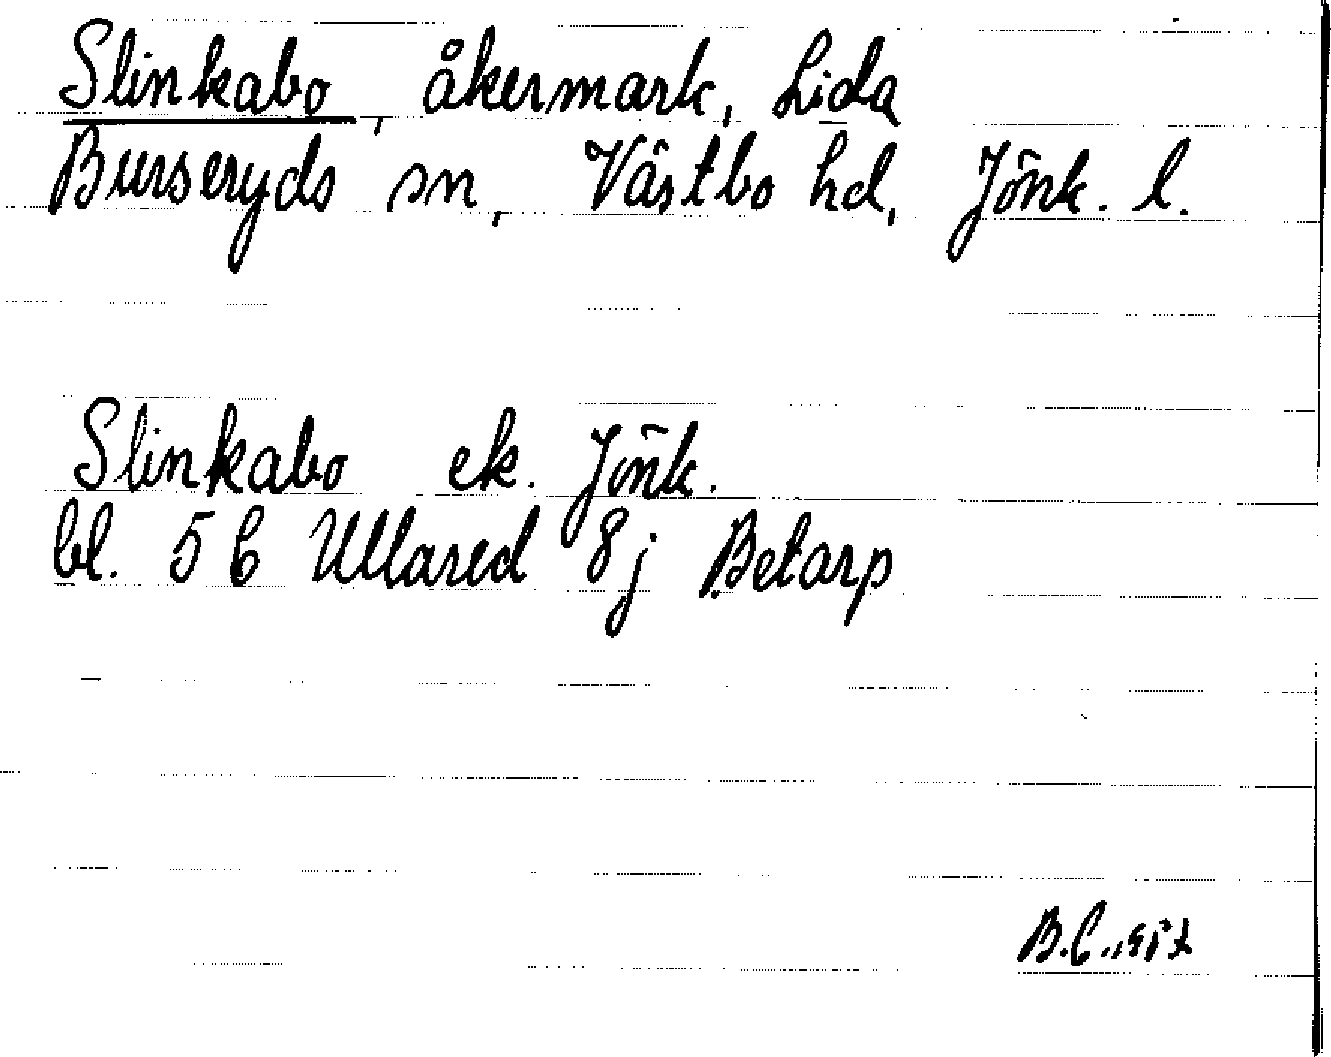 Slinkabo, åkermark, Lida
Burseryds sn, Västbo hd, Jönk. l.
Slinkabo ek. Jönk.
bl. 5 C Ullared 8j Betarp